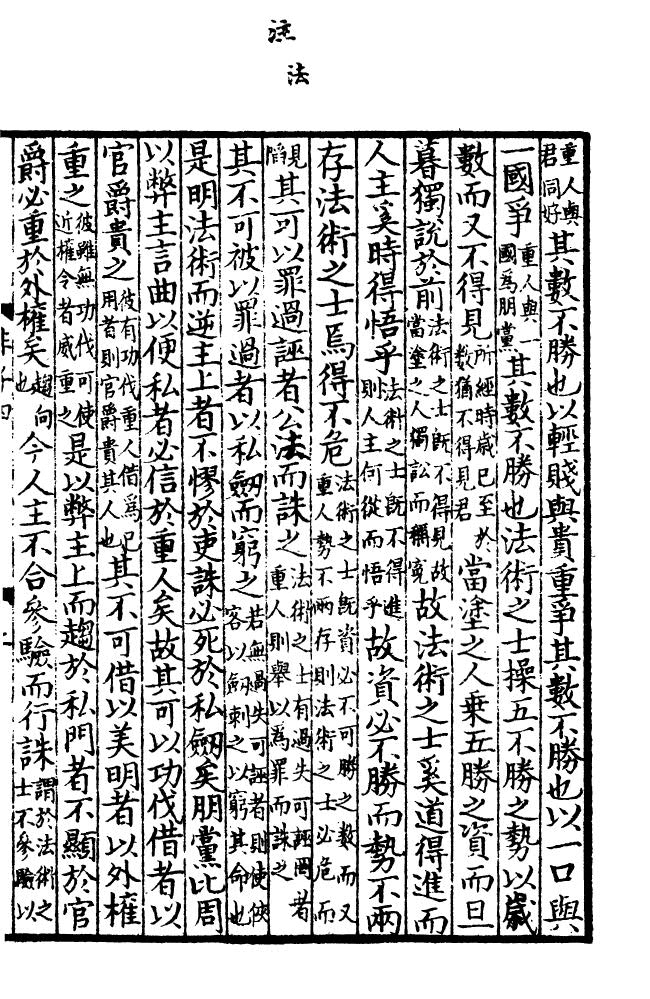 注
法
重人與君同好其數不勝也以輕賤與貴重爭其數不勝也以一口與
一國爭重人與一國爲朋黨其數不勝也法術之士操五不勝之勢以歲
數而又不得見所經時歲已至於數猶不得見君當塗之人乗五勝之資而旦
暮獨說於前法術之士既不得見故當塗之人獨訟而稱寃故法術之士奚道得進而
人主奚時得悟乎法術之士既不得進則人主何從而悟乎故資必不勝而勢不兩
存法術之士焉得不危法術之士既資必不可勝之數而又重人勢不兩存則法術之士必危而
見䧟其可以罪過誣者公法而誅之法術之士有過失可誣罔者重人則舉以爲罪而誅之
其不可被以罪過者以私劔而窮之若無過失可誣者則使俠客以劔刺之以窮其命也
是明法術而逆主上者不僇於吏誅必死於私劔矣朋黨比周
以弊主言曲以便私者必信於重人矣故其可以功伐借者以
官爵貴之彼有功伐重人借爲己用者則官爵貴其人也其不可借以美明者以外權
重之彼雖無功伐可使近權令者威重之是以弊主上而趨於私門者不顯於官
爵必重於外權矣趨向也今人主不合參驗而行誅謂於法術之士不參驗以